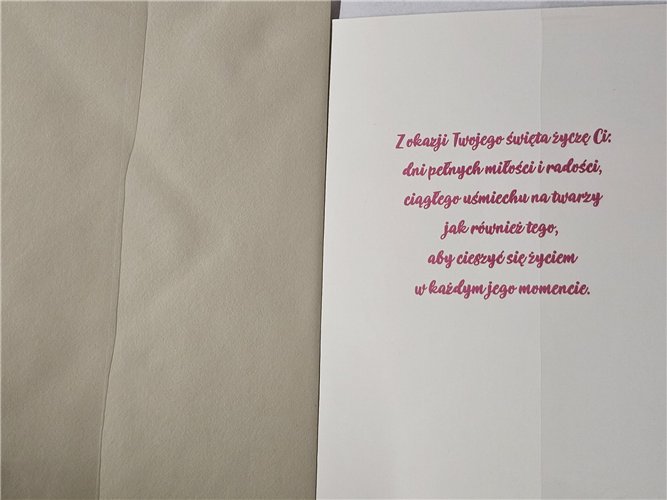 Z okazji Twojego święta życzę Ci:
dni pełnych miłości i radości,
ciągłego uśmiechu na twarzy
jak również tego,
aby cieszyć się życiem
w każdym jego momencie.